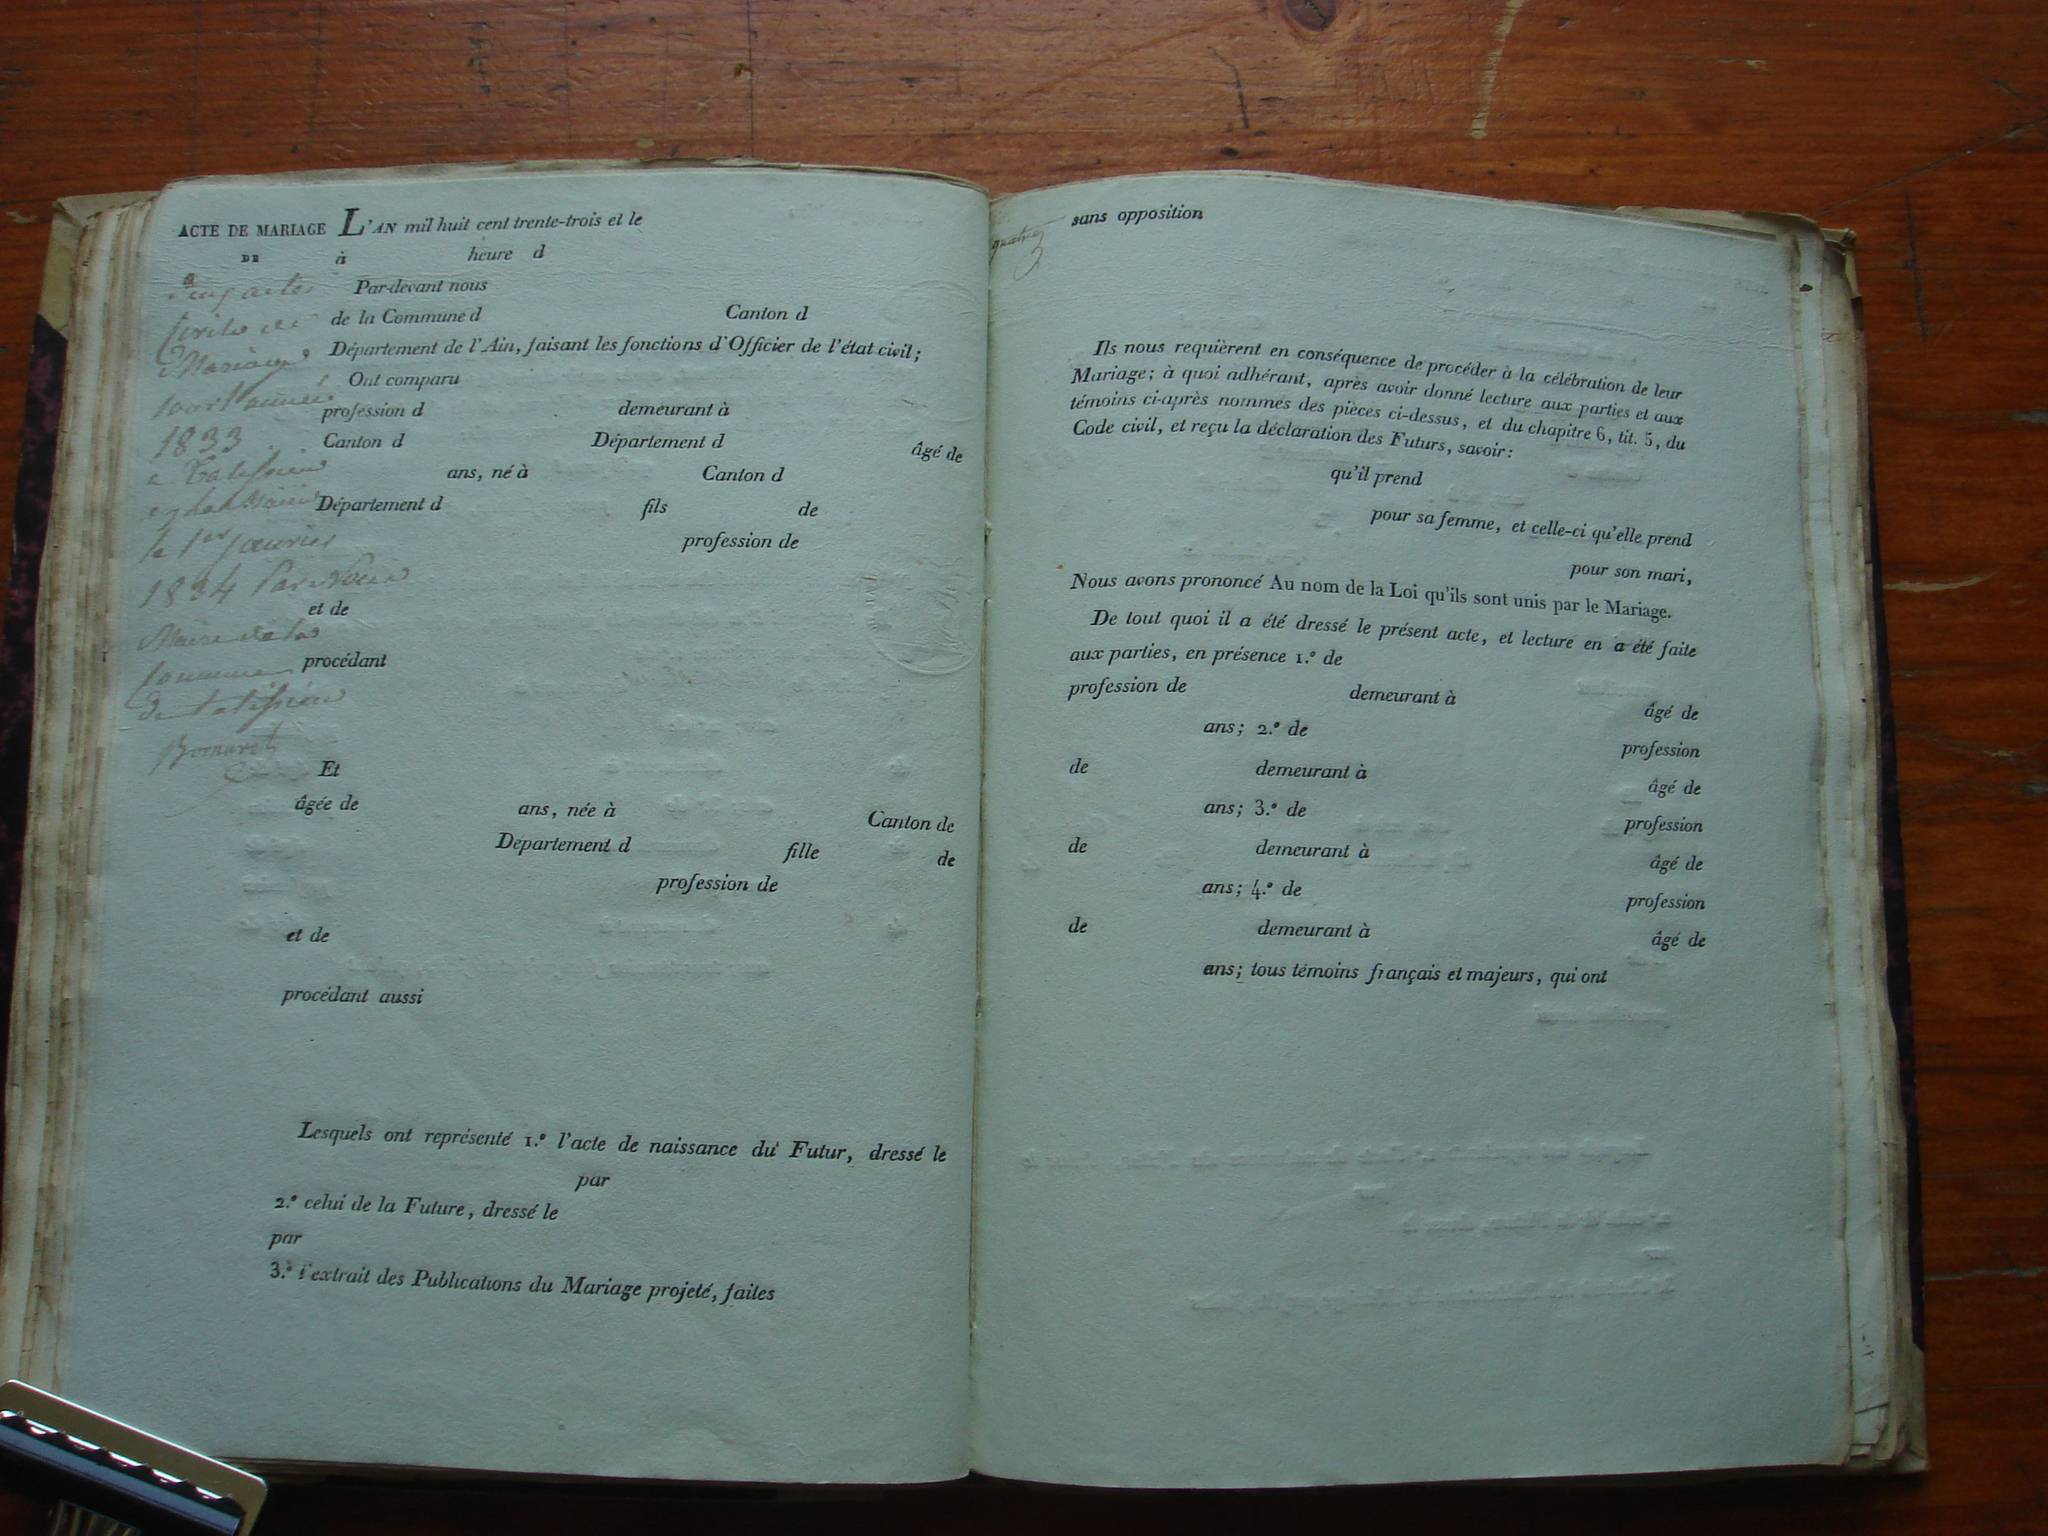 ACTE DE MARIAGE L'AN mil huit cent trente-trois et le
DE à heure d
Par-devant nous
de la Commune d Canton d
Département de l'Ain, faisant les fonctions d'Officier de l'état civil;
Mariage
Ont comparu
pour l'année
profession d demeurant à
1833
Canton d Département d âgé de
ans, né à Canton d
Département d fils de
le 1er janvier
profession de
1834 Par Nous
et de
Maire de la
procédant
Commune
de
Et
âgée de ans, née à Canton de
Département d fille de
profession de
et de
procédant aussi
Lesquels ont représenté 1.º l'acte de naissance du Futur, dressé le
par
2.º celui de la Future, dressé le
par
3.º l'extrait des Publications du Mariage projeté, faites
sans opposition
Ils nous requièrent en conséquence de procéder à la célébration de leur
Mariage; à quoi adhérant, après avoir donné lecture aux parties et aux
témoins ci-après nommés des pièces ci-dessus, et du chapitre 6, tit. 5, du
Code civil, et reçu la déclaration des Futurs, savoir:
qu'il prend
pour sa femme, et celle-ci qu'elle prend
pour son mari,
Nous avons prononcé Au nom de la Loi qu'ils sont unis par le Mariage.
De tout quoi il a été dressé le présent acte, et lecture en a été faite
aux parties, en présence 1.º de
profession de demeurant à âgé de
ans; 2.º de profession
de demeurant à âgé de
ans; 3.º de profession
de demeurant à âgé de
ans; 4.º de profession
de demeurant à âgé de
ans; tous témoins français et majeurs, qui ont